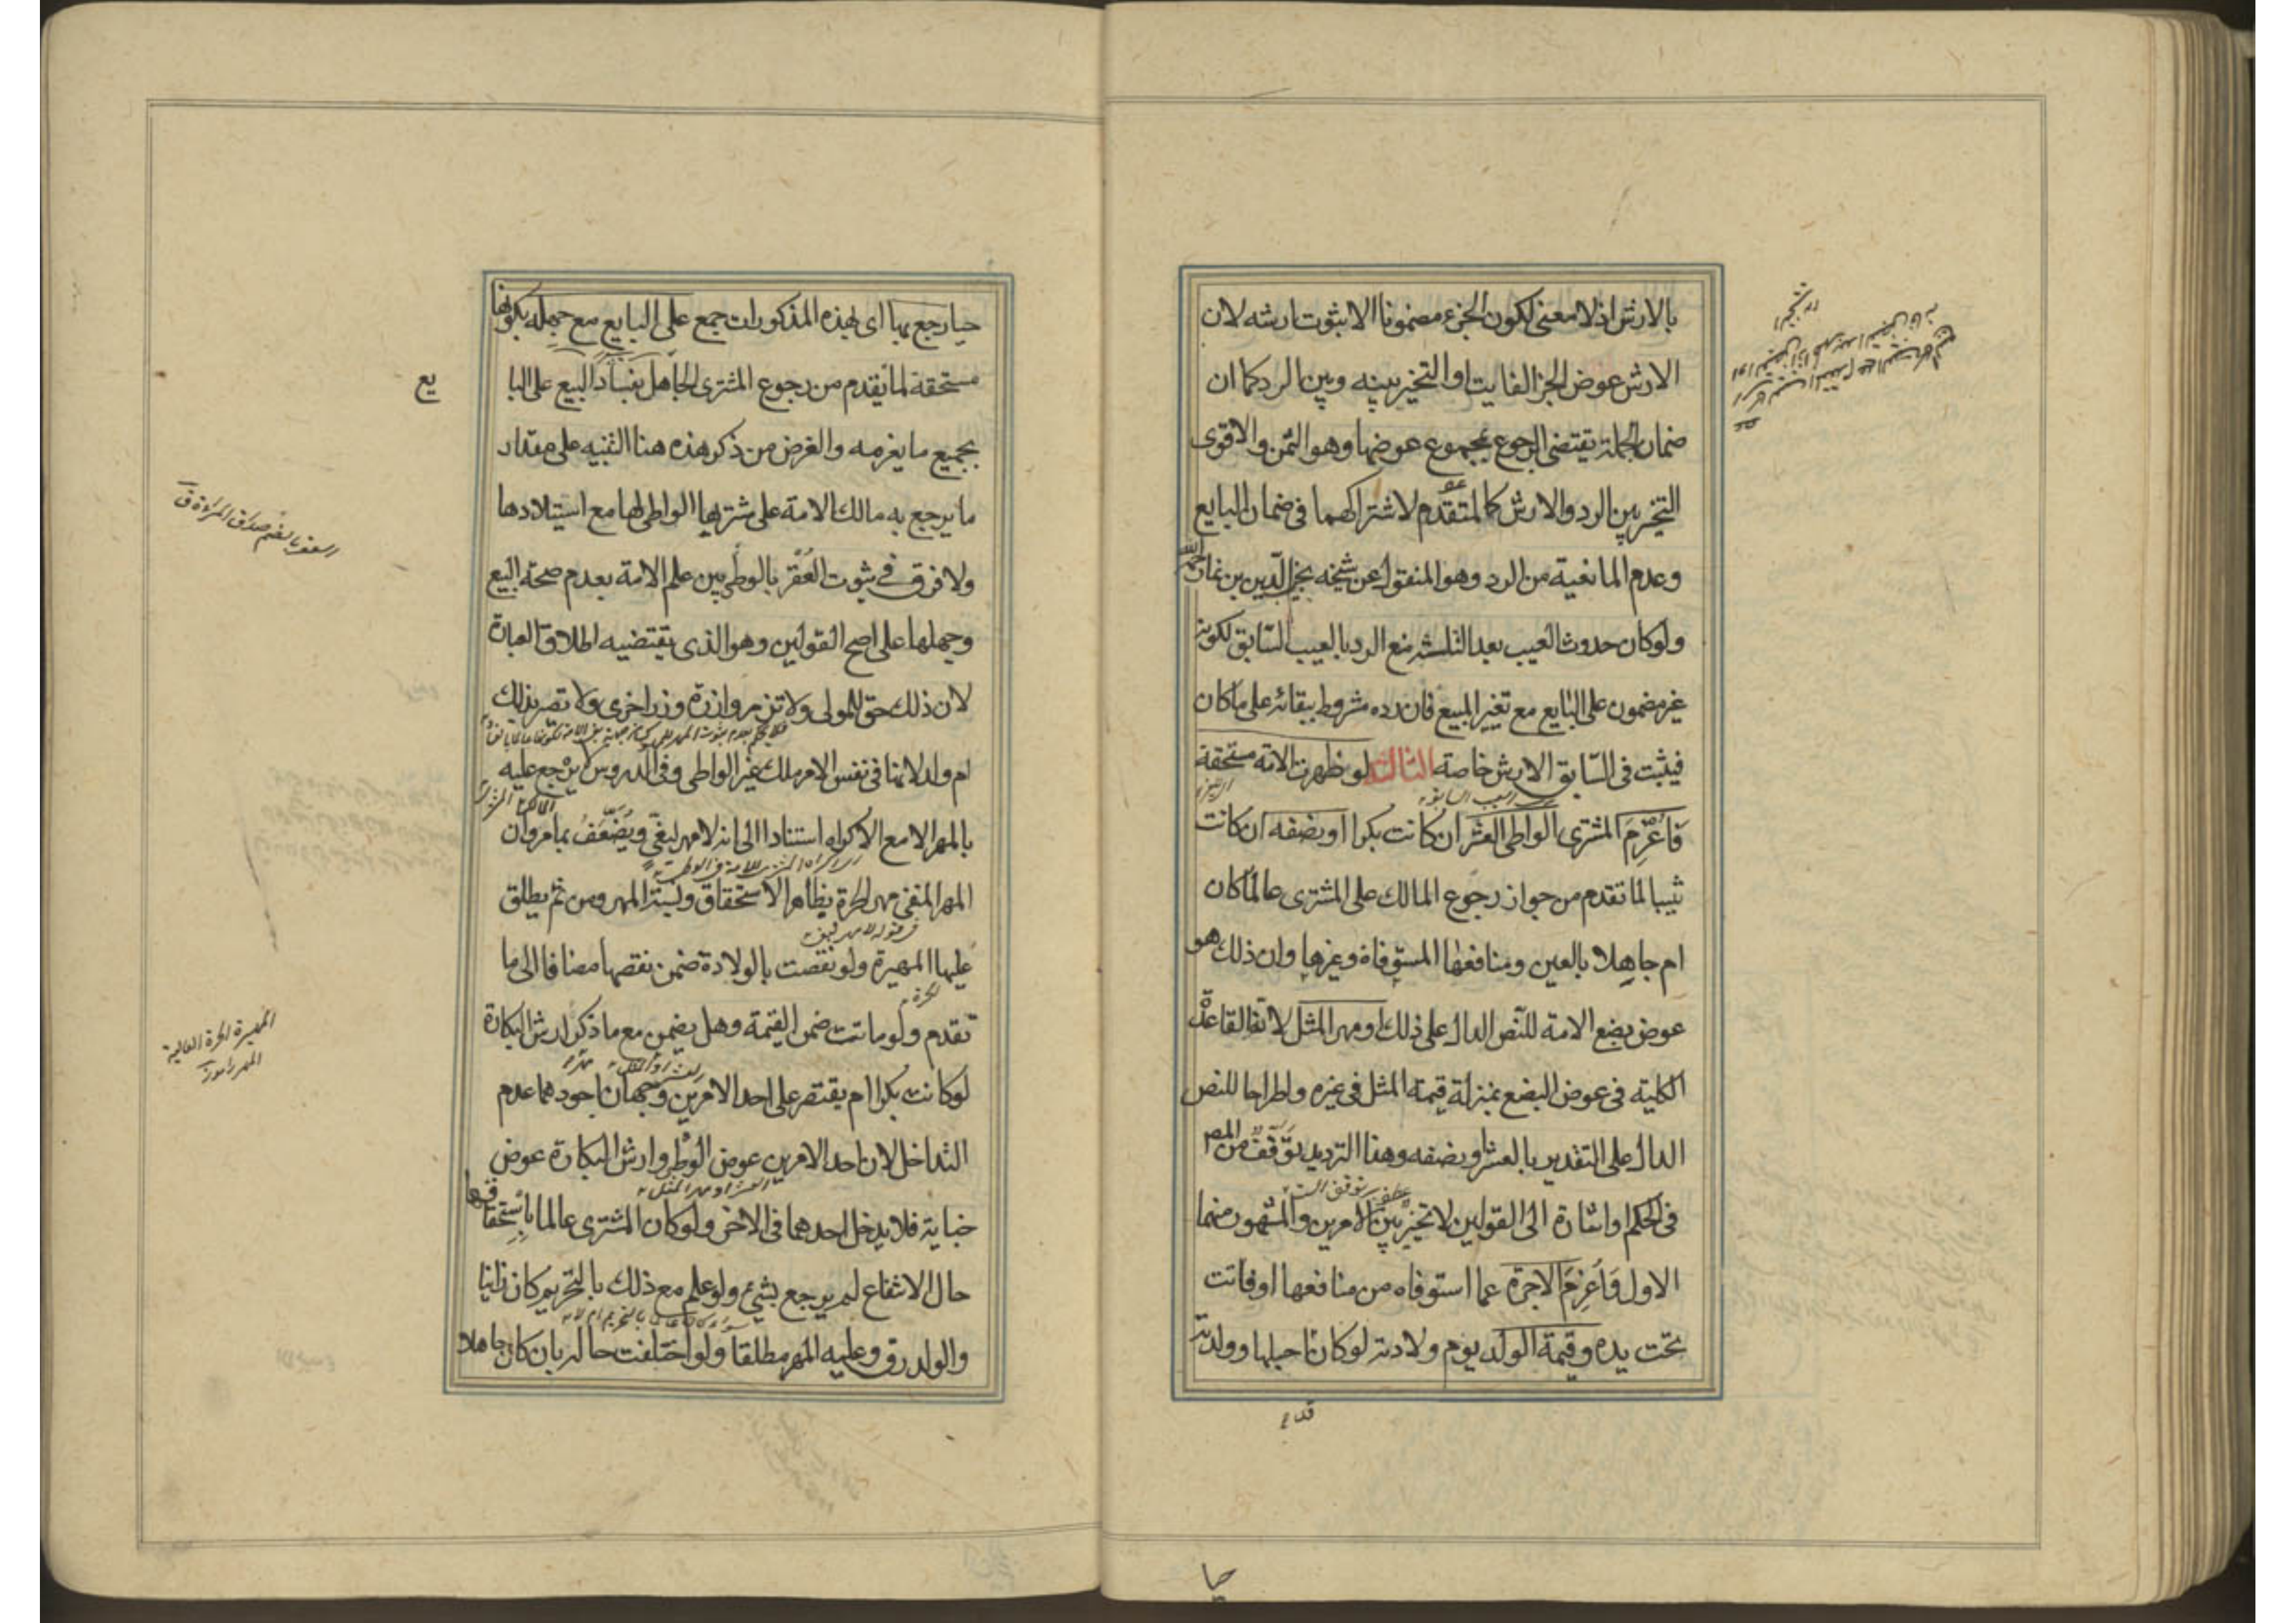 بالارش اذ لا معنى لكون الجزء مضمونا الا ثبوت ارشه لان
الارش عوض الجزء الفايت او التخير بينه وبين الرد كما ان
ضمان الجملة يقتضى الرجوع بمجموع عوضها وهو الثمن والاقوى
التخير بين الرد والارش كالمتقدم لاشتراكهما فى ضمان البايع
وعدم المانعية من الرد وهو المنقول عن شيخه نجيب الدين بن نما رحمه الله
ولو كان حدوث العيب بعد الثلثة منع الرد بالعيب السابق لكونه
غير مضمون على البايع مع تغير المبيع فان رده مشروط ببقائه على ما كان
فيثبت فى السابق الارش خاصة الثالثة لو ظهرت الامة مستحقة
فاُغرِمَ المشترى الواطى العشر ان كانت بكرا او نصفه ان كانت
ثيبا لما تقدم من جواز رجوع المالك على المشترى عالما كان
ام جاهلا بالعين ومنافعها المستوفاة وغيرها وان ذلك هو
عوض بضع الامة للنص الدال على ذلك او مهر المثل لانه القاعدة
الكلية فى عوض البضع بمنزلة قيمة المثل فى غيره واطراحا للنص
الدال على التقدير بالعشر او نصفه وهذا الترديد توقفٌ من المص
فى الحكم او اشارة الى القولين لا تخير بين الامرين والمشهور منهما
الاول وَاُغرِمَ الاجرة عما استوفاه من منافعها او فاتت
تحت يده وقيمة الولد يوم ولادته لو كان احبلها وولدته
حيا
حيا رجع بها اى بهذه المذكورات جمع على البايع مع جهله بكونها
مستحقة لما تقدم من رجوع المشترى الجاهل بفساد البيع على البا
يع
بجميع ما يغرمه والغرض من ذكر هذه هنا التنبيه على مقدار
ما يرجع به مالك الامة على مشتريها الواطى لها مع استيلادها
ولا فرق فى ثبوت العُقر بالوطى بين علم الامة بعدم صحة البيع
وجهلها على اصح القولين وهو الذى يقتضيه اطلاق العبارة
لان ذلك حق للمولى ولا تزر وازرة وزر اخرى ولا تصير بذلك
ام ولد لانها فى نفس الامر ملك غير الواطى وفى الدروس لا يرجع عليه
بالمهر الا مع الاكراه استنادا الى انه لا مهر لبغى ويُضَعَّفُ بما مر وان
المهر المنفى مهر الحرة بظاهر الاستحقاق ونسبة المهر ومن ثم يطلق
عليها المهيرة ولو نقصت بالولادة ضمن نقصها مضافا الى ما
تقدم ولو ماتت ضمن القيمة وهل يضمن مع ما ذكر ارش البكارة
المهيرة الحرة الغالية
المهر
لو كانت بكرا ام يقتصر على احد الامرين وجهان اجودهما عدم
التداخل لان احد الامرين عوض الوطى وارش البكارة عوض
جناية فلا يدخل احدهما فى الاخر ولو كان المشترى عالما باستحقاقها
حال الانتفاع لم يرجع بشئ ولو علم مع ذلك بالتحريم كان زانيا
والولد رق وعليه المهر مطلقا ولو اختلفت حاله بان كان جاهلا